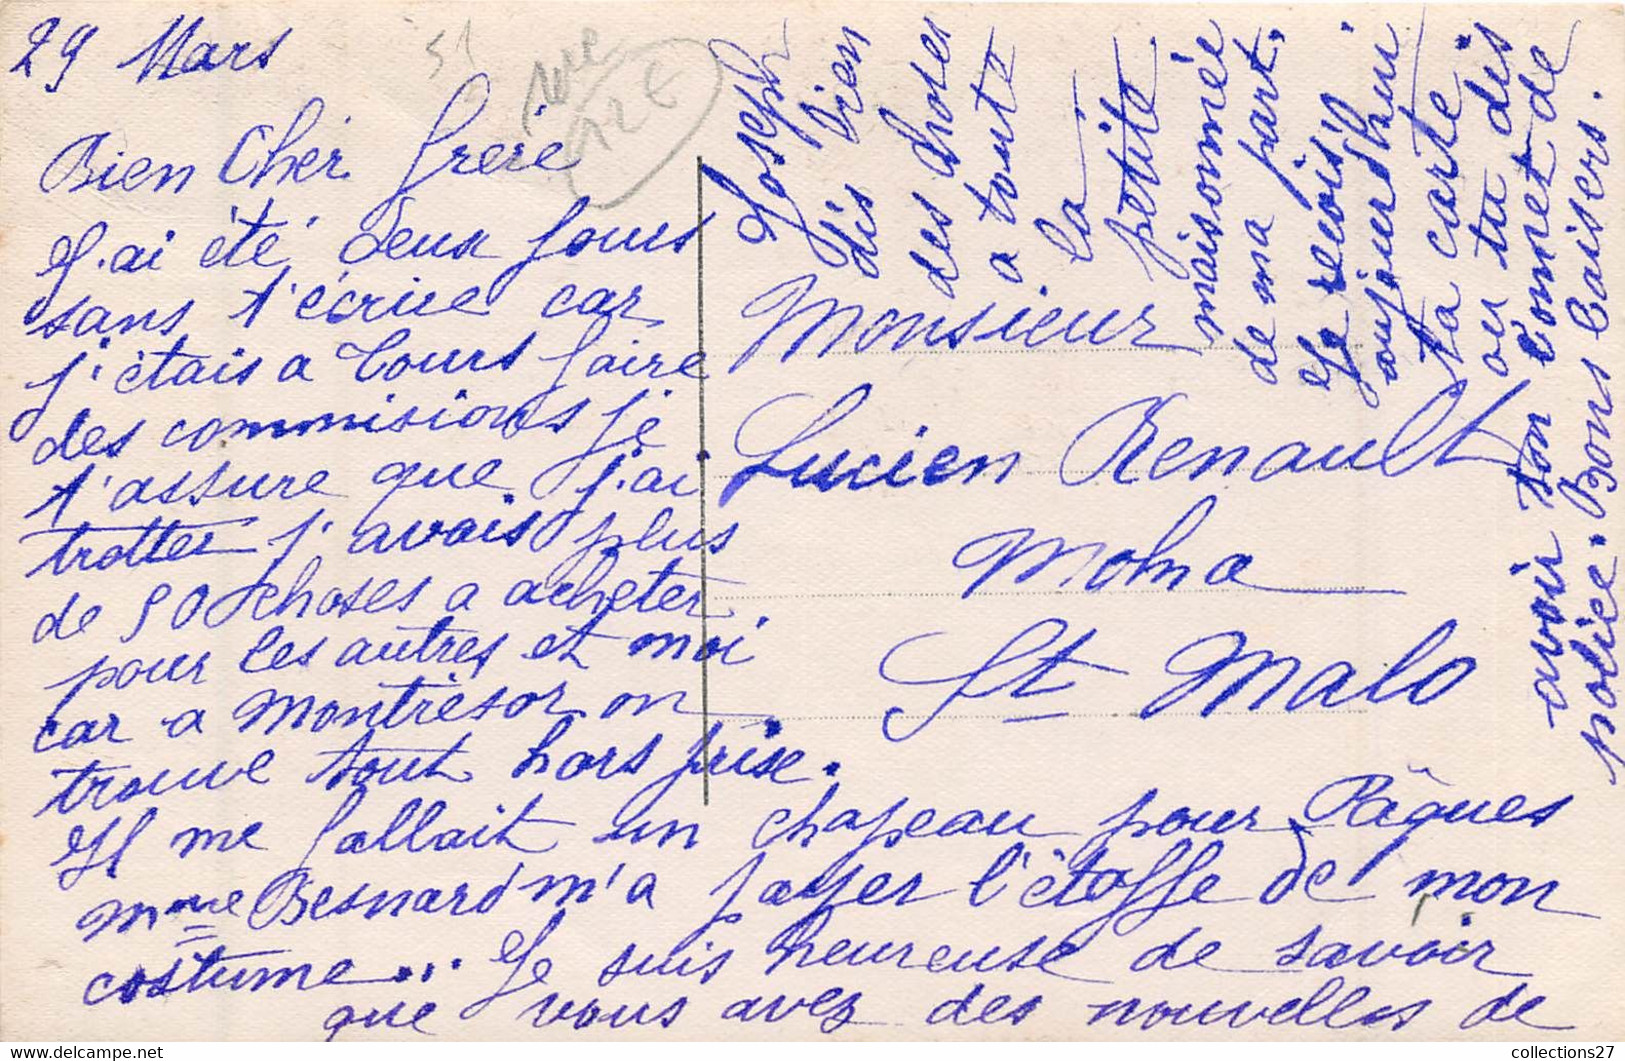 29 Mars
Bien Cher frere
J'ai été deux jours
sans t'écrire car
j'étais a Tours faire
des commisions je
t'assure que j'ai
trotter j'avais plus
de 50 choses a acheter
pour les autres et moi
car a Montrésor on
trouve tout hors prise.
Il me fallait un chapeau pour Pâques
Mme Besnard m'a payer l'étoffe de mon
costume... Je suis heureuse de savoir
que vous avez des nouvelles de
Joseph
dis bien
des choses
a toute
la
petite
maisonnée
de ma part.
Je reçois
aujourdhui
ta carte
ou tu dis
avoir ton carnet de
police. Bons baisers.
Monsieur
Lucien Renault
Moka
St Malo
12 €
collections27